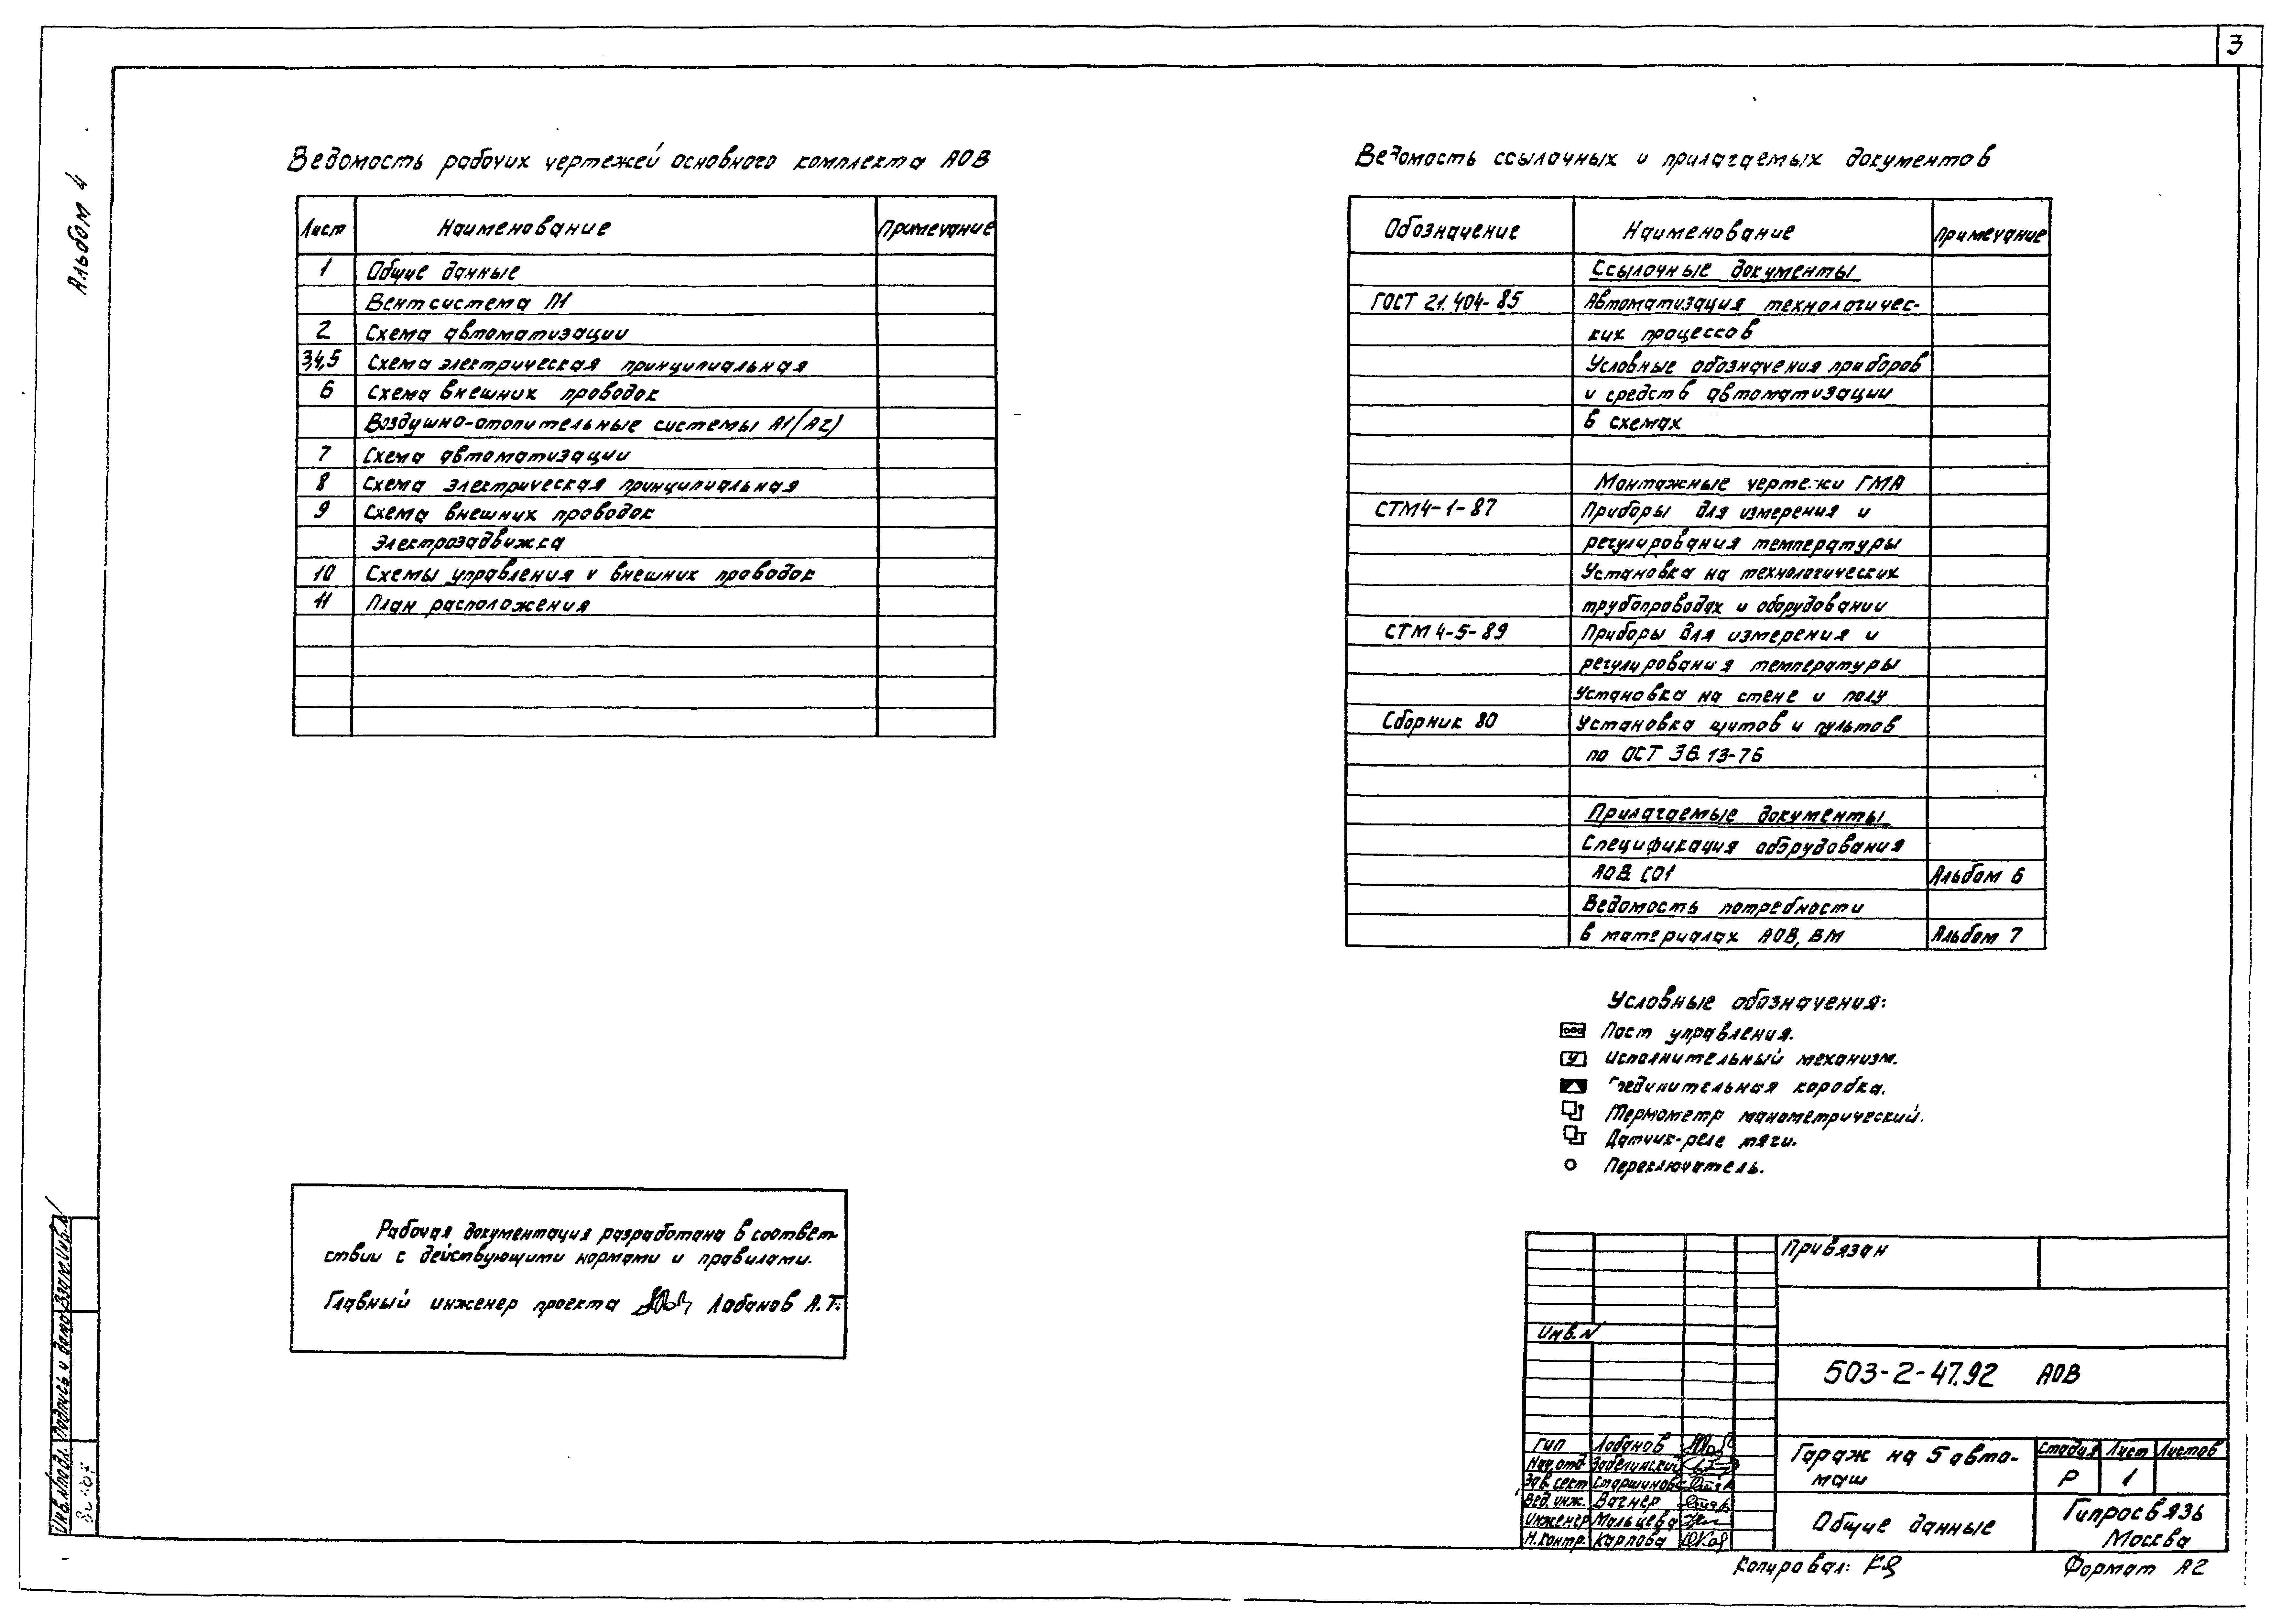 3
Альбом 4
Ведомость рабочих чертежей основного комплекта АОВ
Лист Наименование Примечание
1 Общие данные
Вентсистема П1
2 Схема автоматизации
3,4,5 Схема электрическая принципиальная
6 Схема внешних проводок
Воздушно-отопительные системы А1(А2)
7 Схема автоматизации
8 Схема электрическая принципиальная
9 Схема внешних проводок
Электрозадвижка
10 Схемы управления и внешних проводок
11 План расположения
Ведомость ссылочных и прилагаемых документов
Обозначение Наименование Примечание
Ссылочные документы
ГОСТ 21.404-85 Автоматизация технологичес-
ких процессов
Условные обозначения приборов
и средств автоматизации
в схемах
Монтажные чертежи ГМА
СТМ4-1-87 Приборы для измерения и
регулирования температуры
Установка на технологических
трубопроводах и оборудовании
СТМ 4-5-89 Приборы для измерения и
регулирования температуры
Установка на стене и полу
Сборник 80 Установка щитов и пультов
по ОСТ 36.13-76
Прилагаемые документы
Спецификация оборудования
АОВ.СО1 Альбом 6
Ведомость потребности
в материалах АОВ, ВМ Альбом 7
Условные обозначения:
Пост управления.
Исполнительный механизм.
Соединительная коробка.
Термометр манометрический.
Датчик-реле тяги.
Переключатель.
Рабочая документация разработана в соответ-
ствии с действующими нормами и правилами.
Главный инженер проекта Лобанов А.Т.
Привязан
Инв.N
503-2-47.92 АОВ
ГИП Лобанов
Нач.отд. Забелинский
Зав.сект Старшинова
Вед.инж. Вагнер
Инженер Мальцева
Н.контр. Карпова
Гараж на 5 авто-
маш
Стадия Лист Листов
Р 1
Общие данные
Гипросвязь
Москва
Копировал:
Формат А2
Инв.N подл. Подпись и дата Взам.инв.N